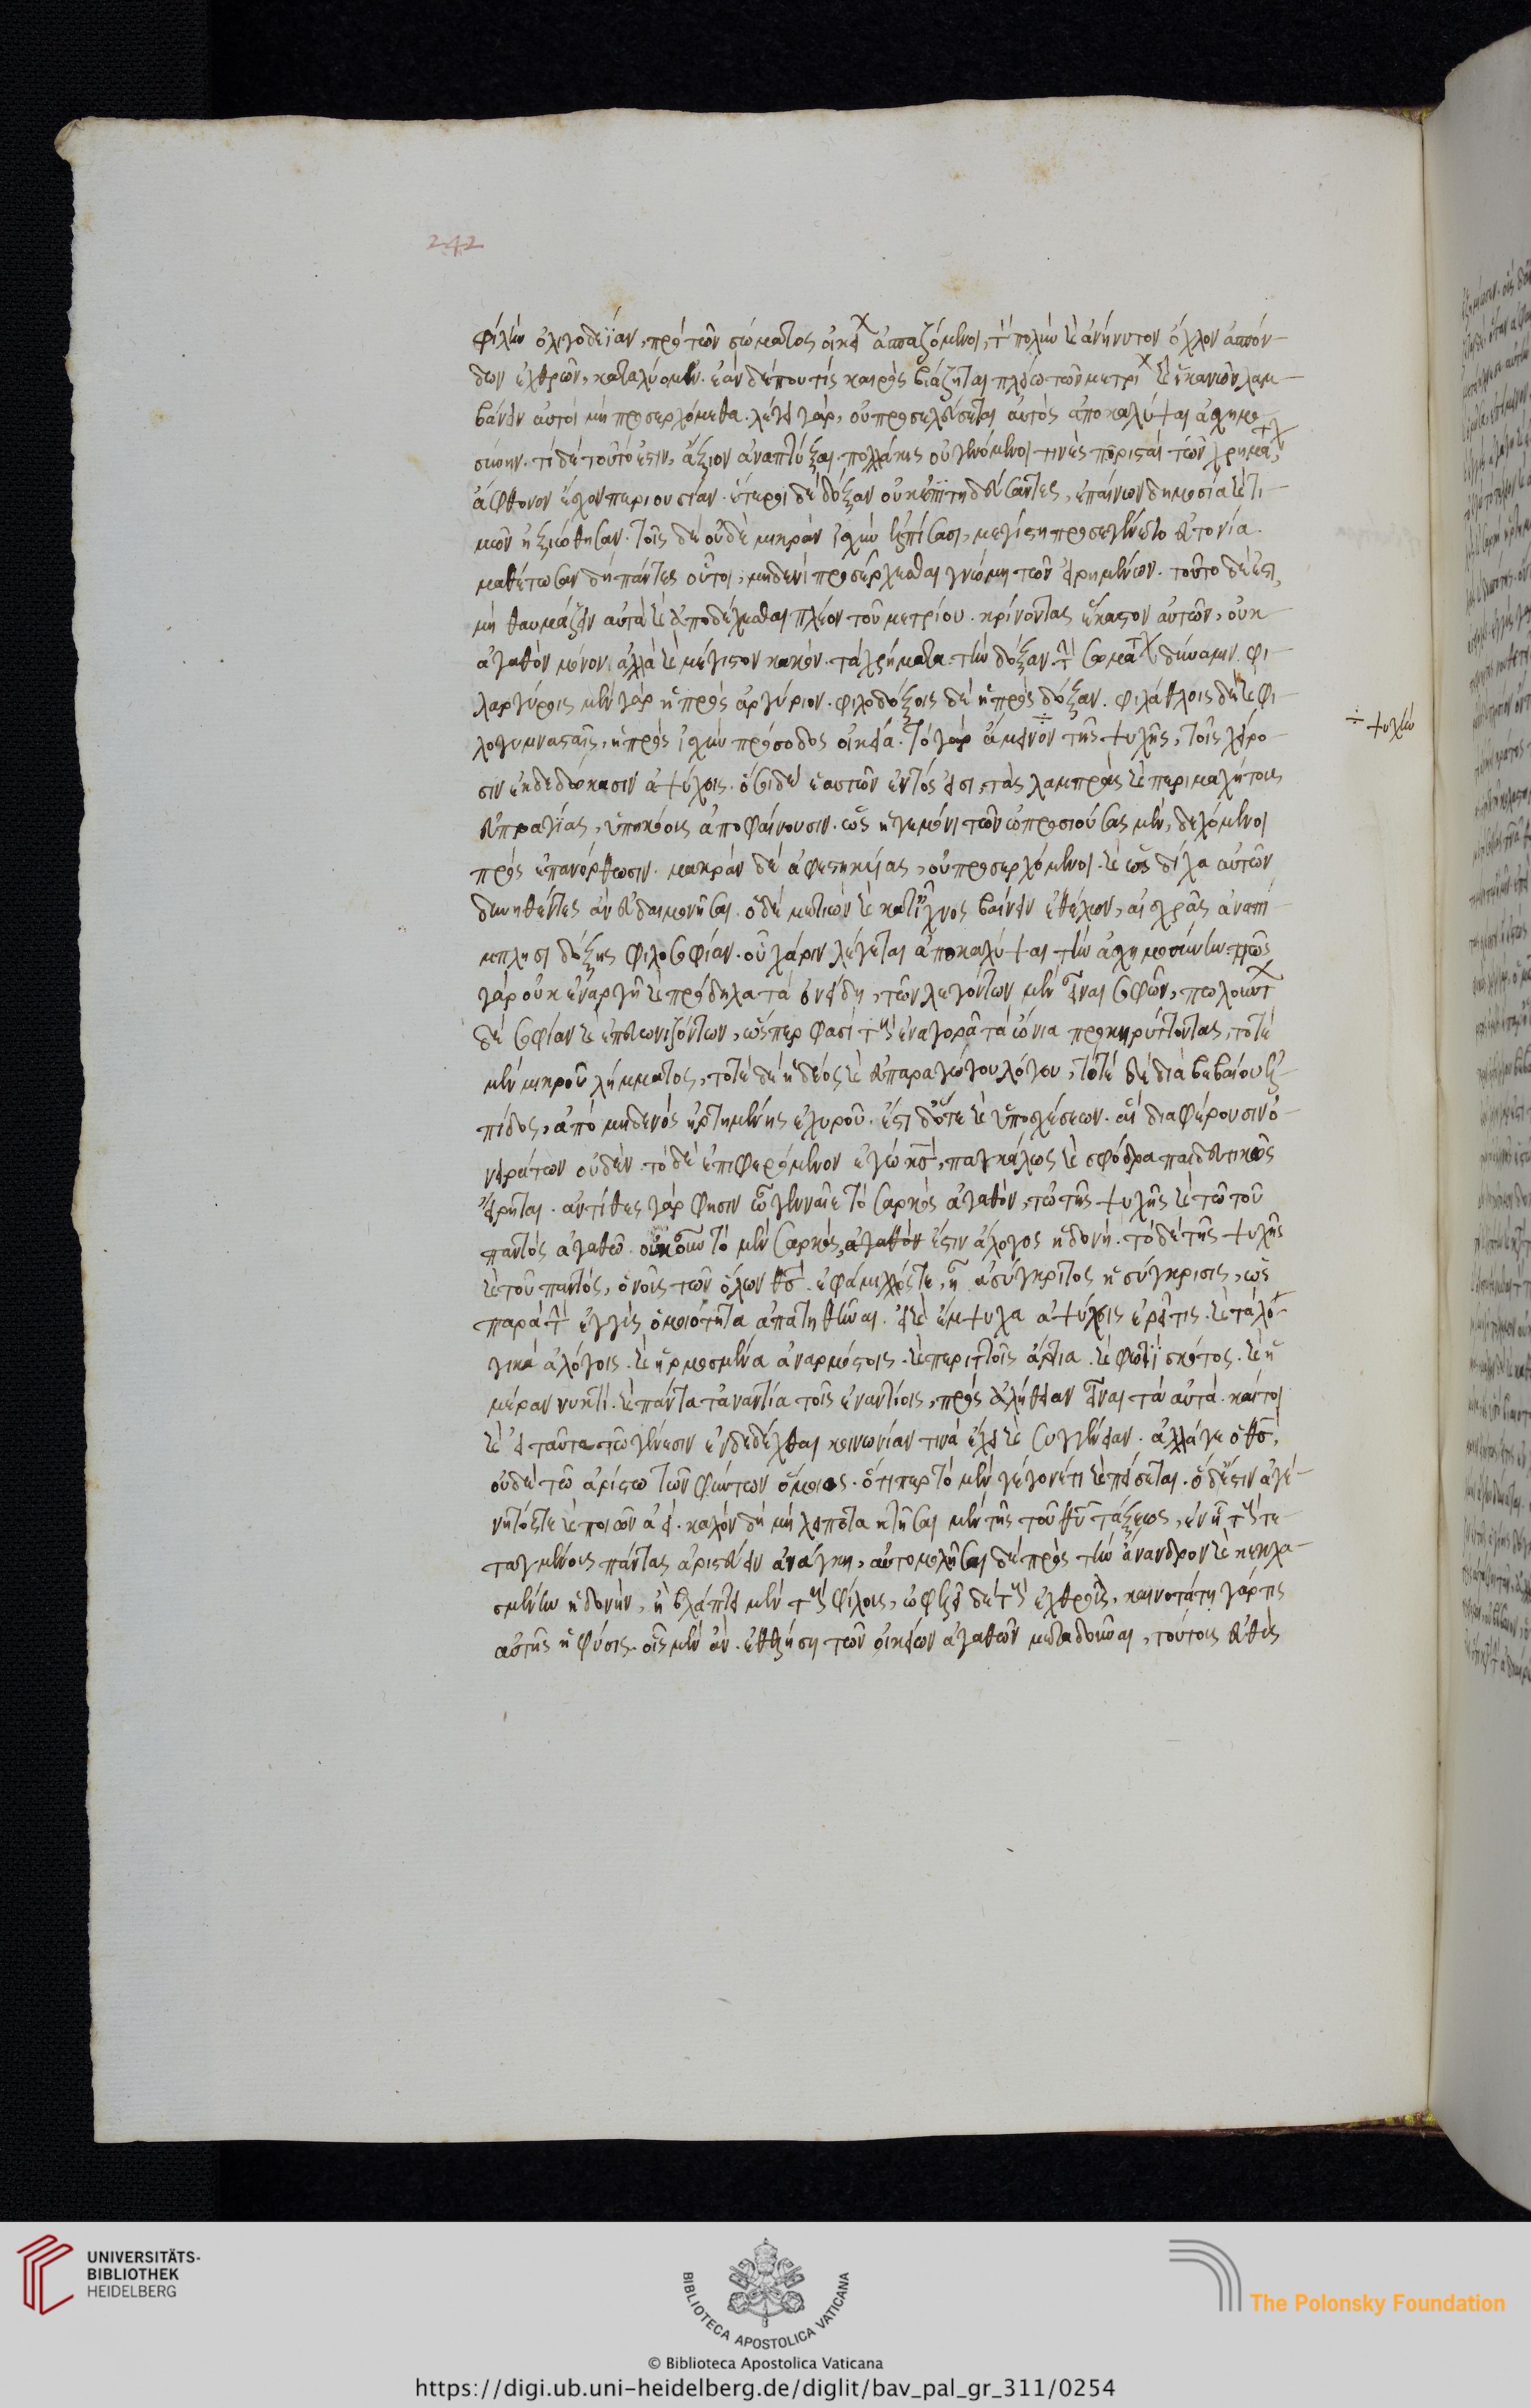 242
φίλην ὀλιγοδεΐαν, πρὸ τῶν σώματος οἰκείων ἀσπαζόμενοι, τὸν πολὺν καὶ ἀνήνυτον ὄχλον ἀσπόν-
δων ἐχθρῶν, καταλύομεν. ἐὰν δέ που τίς καιρὸς βιάζηται πλείω τῶν μετρίων καὶ ἱκανῶν λαμ-
βάνειν αὐτοὶ μὴ προσερχόμεθα. λέγει γὰρ, οὐ προσελεύσεται αὐτὸς ἀποκαλύψαι ἀσχημο
σύνην. τί δὲ τοῦτό ἐστιν, ἄξιον ἀναπτύξαι. πολλάκις οὐ γενόμενοι τινὲς πορισταὶ τῶν χρημάτων,
ἄφθονον ἔσχον περιουσίαν. ἕτεροι δὲ δόξαν οὐκ ἐπιτηδεύσαντες, ἐπαίνων δημοσία καὶ τι-
μῶν ἠξιώθησαν. τοῖς δὲ οὐδὲ μικρὰν ἰσχὺν ἐλπίσασι, μεγίστη προσεγένετο εὐτονία.
μαθέτωσαν δὴ πάντες οὗτοι, μηδενὶ προσέρχεσθαι γνώμη τῶν εἰρημένων. τοῦτο δέ ἐστι,
μὴ θαυμάζειν αὐτὰ καὶ ἀποδέχεσθαι πλέον τοῦ μετρίου. κρίνοντας ἕκαστον αὐτῶν, οὐκ
ἀγαθὸν μόνον ἀλλὰ καὶ μέγιστον κακόν. τὰ χρήματα. τὴν δόξαν. τὴν σωμάτων δύναμιν. φι-
λαργύροις μὲν γὰρ ἡ πρὸς ἀργύριον. φιλοδόξοις δὲ ἡ πρὸς δόξαν. φιλάθλοις δὲ καὶ φι-
λογυμνασταῖς, ἡ πρὸς ἰσχὺν πρόσοδος οἰκεία. τὸ γὰρ ἄμεινον ÷ τῆς ψυχῆς, τοῖς χείρο-
σιν ἐκδεδώκασιν ἀψύχοις. ὅσοι δὲ ἑαυτῶν ἐντὸς εἰσι, τὰς λαμπρὰς καὶ περιμαχήτους
εὐπραγίας, ὑπηκόοις ἀποφαίνουσιν. ὡς ἡγεμόνι τῶ νῶ προσιούσας μὲν, δεχόμενοι
πρὸς ἐπανόρθωσιν. μακρὰν δὲ ἀφεστηκυίας, οὐ προσερχόμενοι. καὶ ὡς δίχα αὐτῶν
δυνηθέντες ἂν εὐδαιμονῆσαι. ὁ δὲ μετιὼν καὶ κατίχνος βαίνειν ἐθέλων, αἰσχρᾶς ἀναπί
μπλησι δόξης φιλοσοφίαν. οὗ χάριν λέγεται ἀποκαλύψαι τὴν ἀσχημοσύνην. πῶς
γὰρ οὐκ ἐναργῆ καὶ πρόδηλα τὰ ὀνείδη, τῶν λεγόντων μὲν εἶναι σοφῶν, πωλούντων
δὲ σοφίαν καὶ ἐπευωνιζόντων, ὥσπερ φασὶ τοὺς ἐν ἀγορᾶ τὰ ὤνια προκηρύττοντας, τοτὲ
μὲν μικροῦ λήμματος, τοτὲ δὲ ἡδέος καὶ εὐπαραγώγου λόγου, τότε δὲ διὰ βεβαίου ἐλ-
πίδος, ἀπὸ μηδενὸς ἠρτημένης ἐχυροῦ. ἔστι δ' ὅτε καὶ ὑποσχέσεων. αἳ διαφέρουσιν ὀ-
νειράτων οὐδὲν. τὸ δὲ ἐπιφερόμενον ἐγὼ κς, παγκάλως καὶ σφόδρα παιδευτικῶς
εἴρηται. ἀντίθες γὰρ φησιν ὦ γενναῖε τὸ σαρκὸς ἀγαθὸν, τῶ τῆς ψυχῆς καὶ τῶ τοῦ
παντὸς ἀγαθῶ. οὐκοῦν τὸ μὲν σαρκὸς, ἀγαθόν ἐστιν ἄλογος ἡδονή. τὸ δὲ τῆς ψυχῆς
καὶ τοῦ παντός, ὁ νοῦς τῶν ὅλων θς. ἐφάμιλλός τε, ἡ ἀσύγκριτος ἡ σύγκρισις, ὡς
παρὰ τὴν ἐγγὺς ὁμοιότητα ἀπατηθῆναι. εἰ καὶ ἔμψυχα ἀψύχοις ἐρεῖ τις. καὶ τὰ λο-
γικὰ ἀλόγοις. καὶ ἡρμοσμένα ἀναρμόστοις. καὶ περιττοῖς ἄρτια. καὶ φωτὶ σκότος. καὶ ἡ-
μέραν νυκτὶ. καὶ πάντα τἀναντία τοῖς ἐναντίοις, πρὸς ἀλήθειαν εἶναι τὰ αὐτά. καίτοι
καὶ εἰ ταῦτα τῶ γένεσιν ἐνδεδέχθαι κοινωνίαν τινὰ ἔχει καὶ συγγένειαν. ἀλλά γε ὁ θς,
οὐδὲ τῶ ἀρίστω τῶν φύντων ὅμοιος. ὅτιπερ τὸ μὲν γέγονέ τι καὶ πείσεται. ὁ δέ ἐστιν ἀγέ-
νητός τε καὶ ποιῶν ἀεί. καλὸν δὴ μὴ λειποτακτῆσαι μὲν τῆς τοῦ θυ τάξεως, ἐν ἧ τοὺς τε-
ταγμένους πάντας ἀριστεύειν ἀνάγκη, αὐτομολῆσαι δὲ πρὸς τὴν ἄνανδρον καὶ κεκλα-
σμένην ἡδονὴν, ἣ βλάπτει μὲν τοὺς φίλους, ὠφελεῖ δὲ τοὺς ἐχθροὺς, καινοτάτη γάρ τις
αὐτῆς ἡ φύσις. οἷς μὲν ἂν ἐθελήση τῶν οἰκείων ἀγαθῶν μεταδοῦναι, τούτους εὐθὺς
÷ ψυχὴν
UNIVERSITÄTS-
BIBLIOTHEK
HEIDELBERG
BIBLIOTECA APOSTOLICA VATICANA
The Polonsky Foundation
© Biblioteca Apostolica Vaticana
https://digi.ub.uni-heidelberg.de/diglit/bav_pal_gr_311/0254